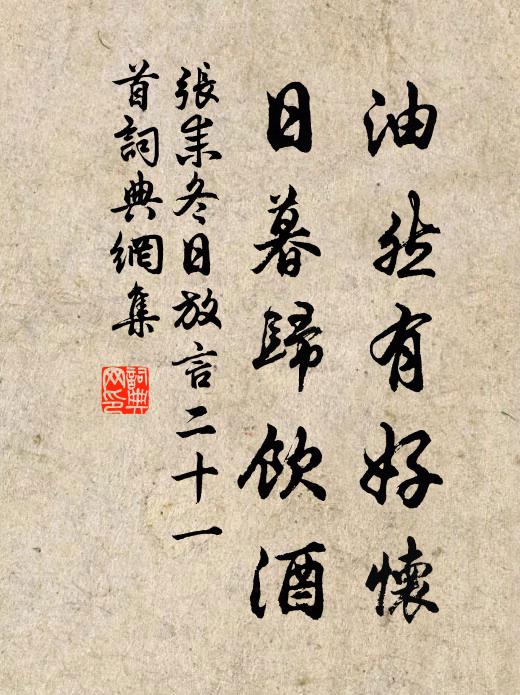 油然有好懷
日暮歸飲酒
張耒冬日放言二十一
首詞典網集
詞典
网印